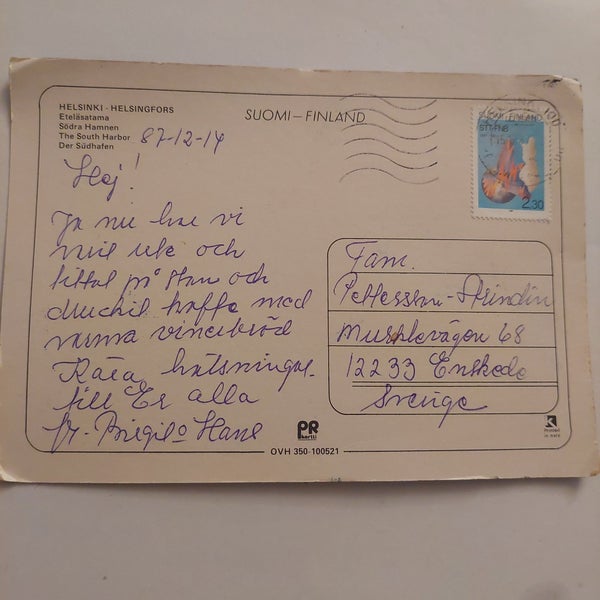 HELSINKI - HELSINGFORS
Eteläsatama
Södra Hamnen
The South Harbor
Der Südhafen
SUOMI – FINLAND
87-12-14
SUOMI - FINLAND
STT-FNB
2.30
Hej!
Ja nu har vi
varit ute och
tittat på stan och
druckit kaffe med
varma vinerbröd
Kära hälsningar
till Er alla
fr. Birgit o Hans
Fam.
Pettersson-
68
12233 Enskede
Sverige
PR
kortti
OVH 350-100521